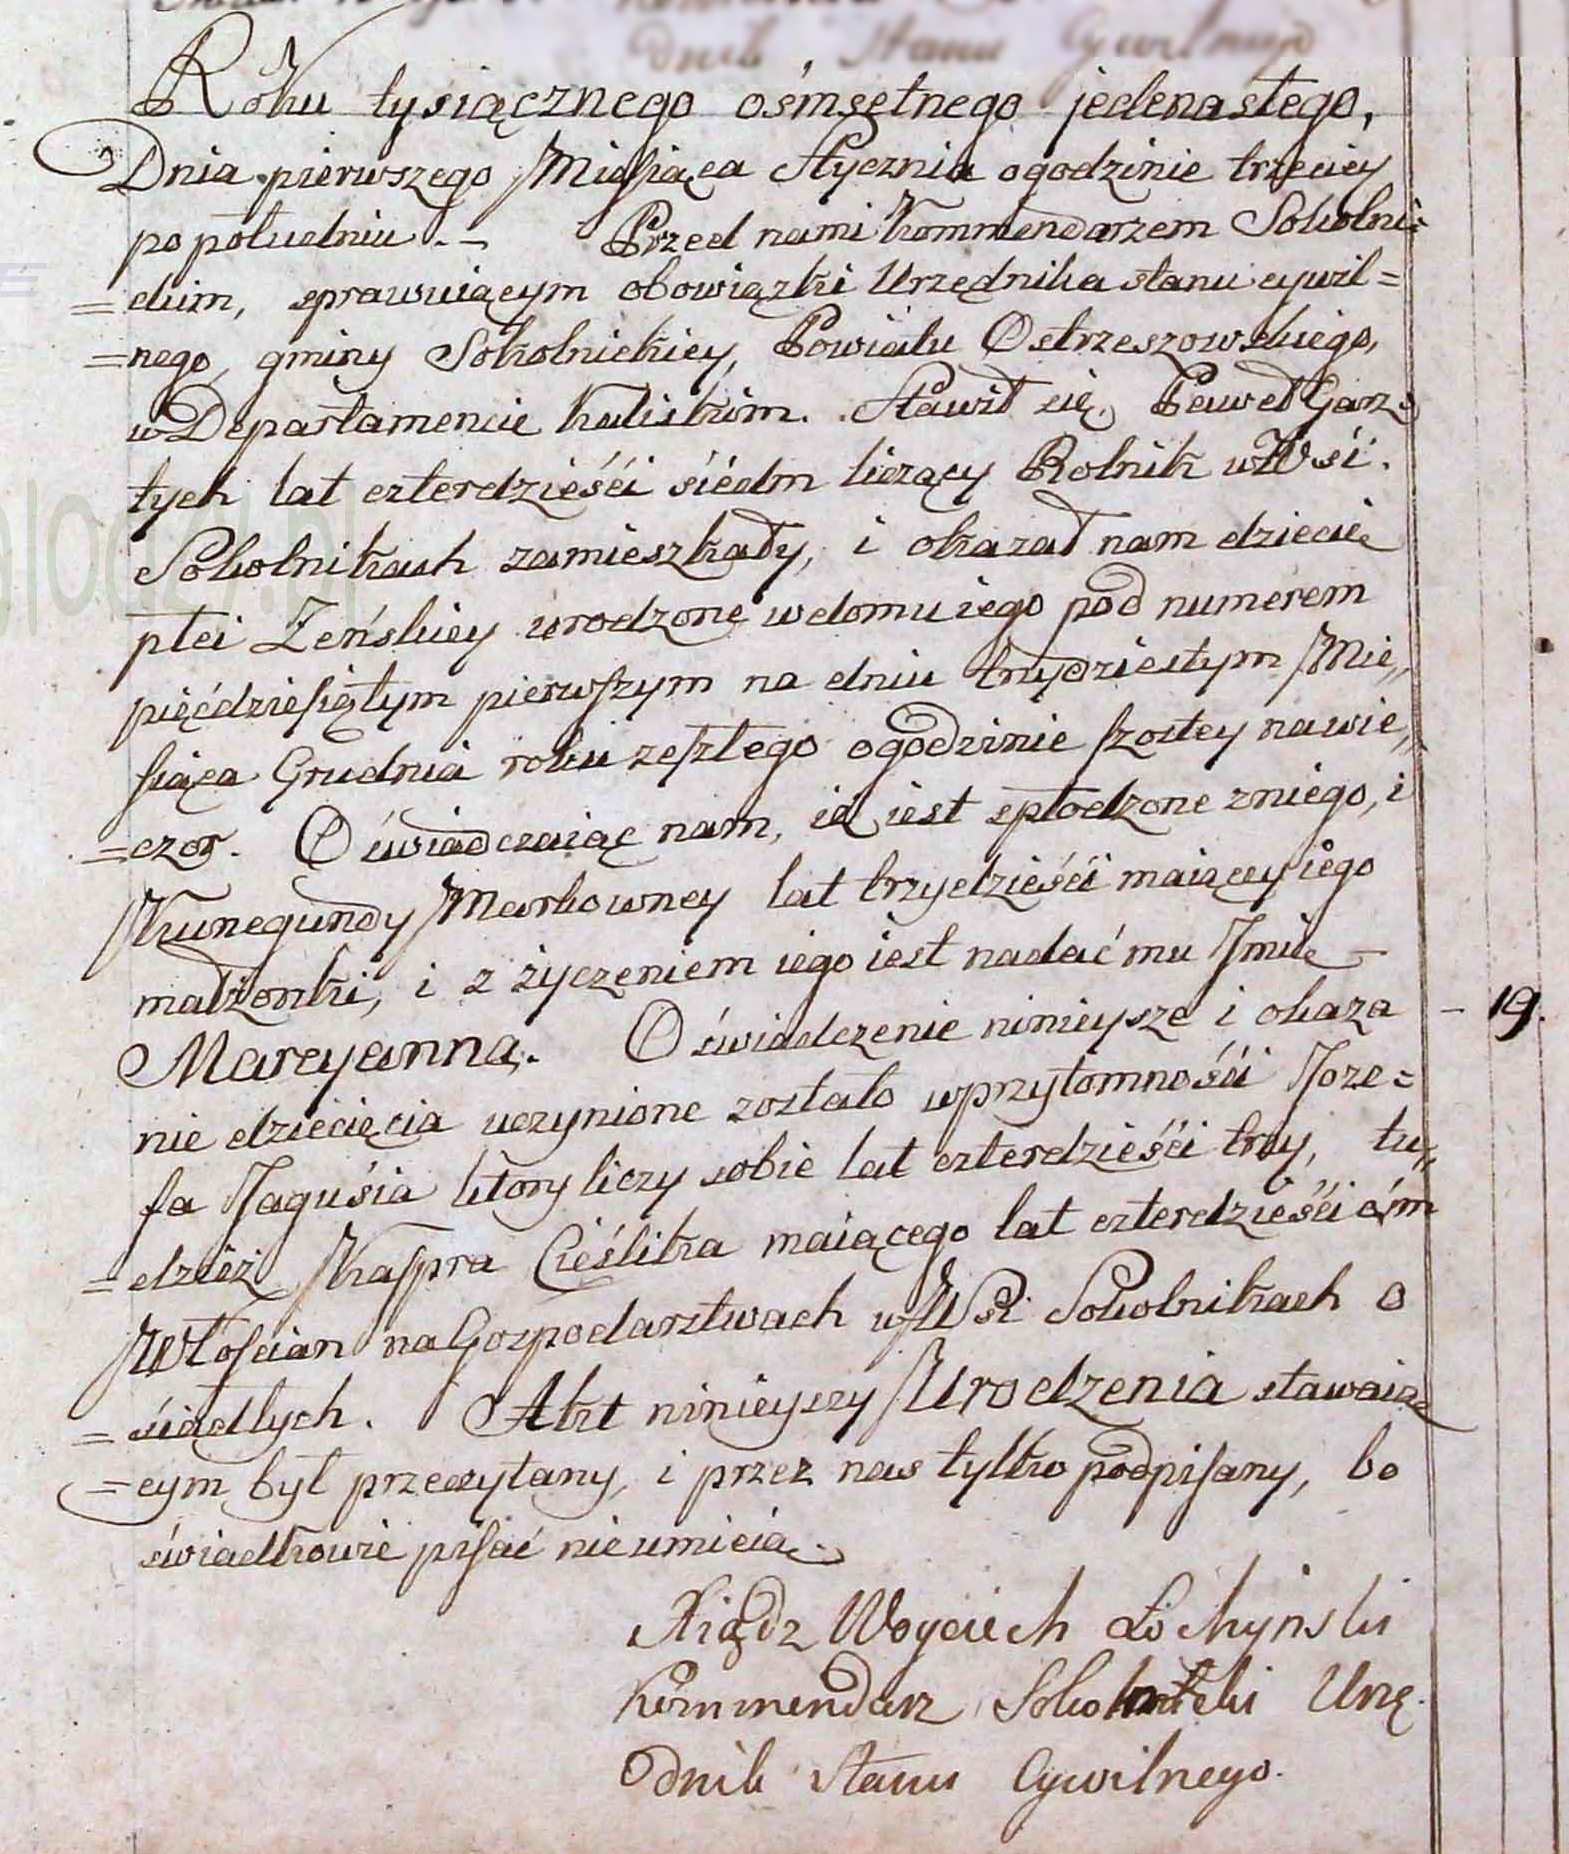 dnik Stanu Cywilnego
Roku tysiącznego ośmsetnego jedenastego,
Dnia pierwszego Miesiąca Stycznia o godzinie trzeciey
po południu. — Przed nami Kommendarzem Sokolni=
=ckim, sprawuiącym obowiązki Urzędnika stanu cywil=
=nego, gminy Sokolnickiey, Powiatu Ostrzeszowskiego,
w Departamencie Kaliskim. Stawił się Paweł Garz=
tych lat czterdzieści siedm liczący Rolnik w Wsi.
Sokolnikach zamieszkały, i okazał nam dziecię
płci Zeńskiey urodzone w domu iego pod numerem
pięćdziesiątym pierwszym na dniu trzydziestym Mie„
siąca Grudnia roku zeszłego o godzinie szostey na wie„
=czor. Oświadczaiąc nam, iż iest spłodzone z niego, i
Kunegundy Markowney lat trzydzieści maiącey iego
małżonki, i z życzeniem iego iest nadać mu Jmie —
Maryanna. Oświadczenie ninieysze i okaza — 19.
nie dziecięcia uczynione zostało w przytomności Joze=
fa Jagusia ktory liczy sobie lat czterdzieści trzy, tu„
=dzież Kaspra Cieślika maiącego lat czterdzieści ośm
Włoscian na Gospodarstwach w Wsi Sokolnikach o
=siadłych. Akt ninieyszy Urodzenia stawaią
=cym był przeczytany, i przez nas tylko podpisany, bo
świadkowie pisać nie umieią.
Xiądz Woyciech Łochyński
Kommendarz Sokolnicki Urzę
dnik Stanu Cywilnego.